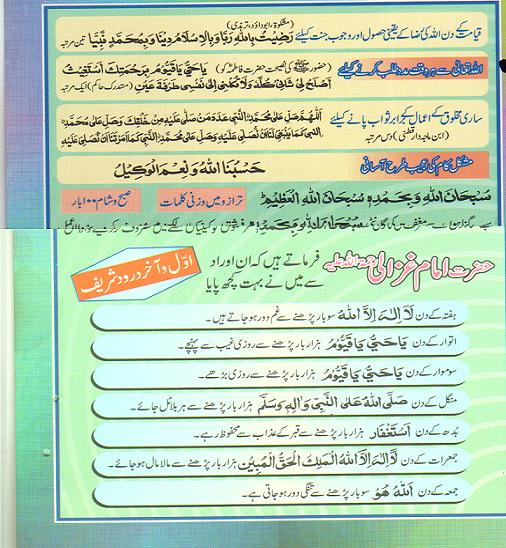 قیامت کے دن اللہ کی رضا کے یقینی حصول اور وجوب جنت کیلئے (مشکوٰۃ، ابوداؤد، ترمذی) رَضِیْتُ بِاللّٰہِ رَبًّا وَّبِالْاِسْلَامِ دِیْنًا وَّبِمُحَمَّدٍ نَّبِیًّا تین مرتبہ
اللہ تعالیٰ سے ہر وقت مدد طلب کرنے کیلئے (حضور ﷺ کی نصیحت حضرت فاطمہؓ کو) یَاحَیُّ یَاقَیُّوْمُ بِرَحْمَتِکَ اَسْتَغِیْثُ
اَصْلِحْ لِیْ شَانِیْ کُلَّہٗ وَلَا تَکِلْنِیْ اِلٰی نَفْسِیْ طَرْفَۃَ عَیْنٍ (مستدرک حاکم) ایک مرتبہ
ساری مخلوق کے اعمال کے برابر ثواب پانے کیلئے
(ابن ماجہ، دارقطنی) دس مرتبہ
اَللّٰہُمَّ صَلِّ عَلٰی مُحَمَّدِ النَّبِیِّ عَدَدَ مَنْ صَلّٰی عَلَیْہِ مِنْ خَلْقِکَ وَصَلِّ عَلٰی مُحَمَّدِ
النَّبِیِّ کَمَا یَنْبَغِیْ لَنَا اَنْ نُّصَلِّیَ عَلَیْہِ وَصَلِّ عَلٰی مُحَمَّدِ النَّبِیِّ کَمَا اَمَرْتَنَا اَنْ نُّصَلِّیَ عَلَیْہِ
مشکل کام کی عجیب طرح آسانی
حَسْبُنَا اللّٰہُ وَنِعْمَ الْوَکِیْلُ
سُبْحَانَ اللّٰہِ وَبِحَمْدِہٖ سُبْحَانَ اللّٰہِ الْعَظِیْمِ
ترازو میں وزنی کلمات
صبح و شام ۱۰۰ بار
حضرت امام غزالی رحمۃ اللہ علیہ فرماتے ہیں کہ ان اوراد
سے میں نے بہت کچھ پایا
اوّل و آخر درود شریف
ہفتہ کے دن لَا اِلٰہَ اِلَّا اللّٰہُ سو بار پڑھنے سے غم دور ہو جاتے ہیں۔
اتوار کے دن یَاحَیُّ یَاقَیُّوْمُ ہزار بار پڑھنے سے روزی غیب سے پہنچے۔
سوموار کے دن یَاحَیُّ یَاقَیُّوْمُ ہزار بار پڑھنے سے روزی بڑھے۔
منگل کے دن صَلَّی اللّٰہُ عَلَی النَّبِیِّ وَاٰلِہٖ وَسَلَّمَ ہزار بار پڑھنے سے ہر بلا ٹل جائے۔
بدھ کے دن اَسْتَغْفَار ہزار بار پڑھنے سے قبر کے عذاب سے محفوظ رہے۔
جمعرات کے دن لَآ اِلٰہَ اِلَّا اللّٰہُ الْمَلِکُ الْحَقُّ الْمُبِیْنُ ہزار بار پڑھنے سے مالا مال ہو جائے۔
جمعہ کے دن اَللّٰہُ ھُوَ سو بار پڑھنے سے تنگی دور ہو جاتی ہے۔